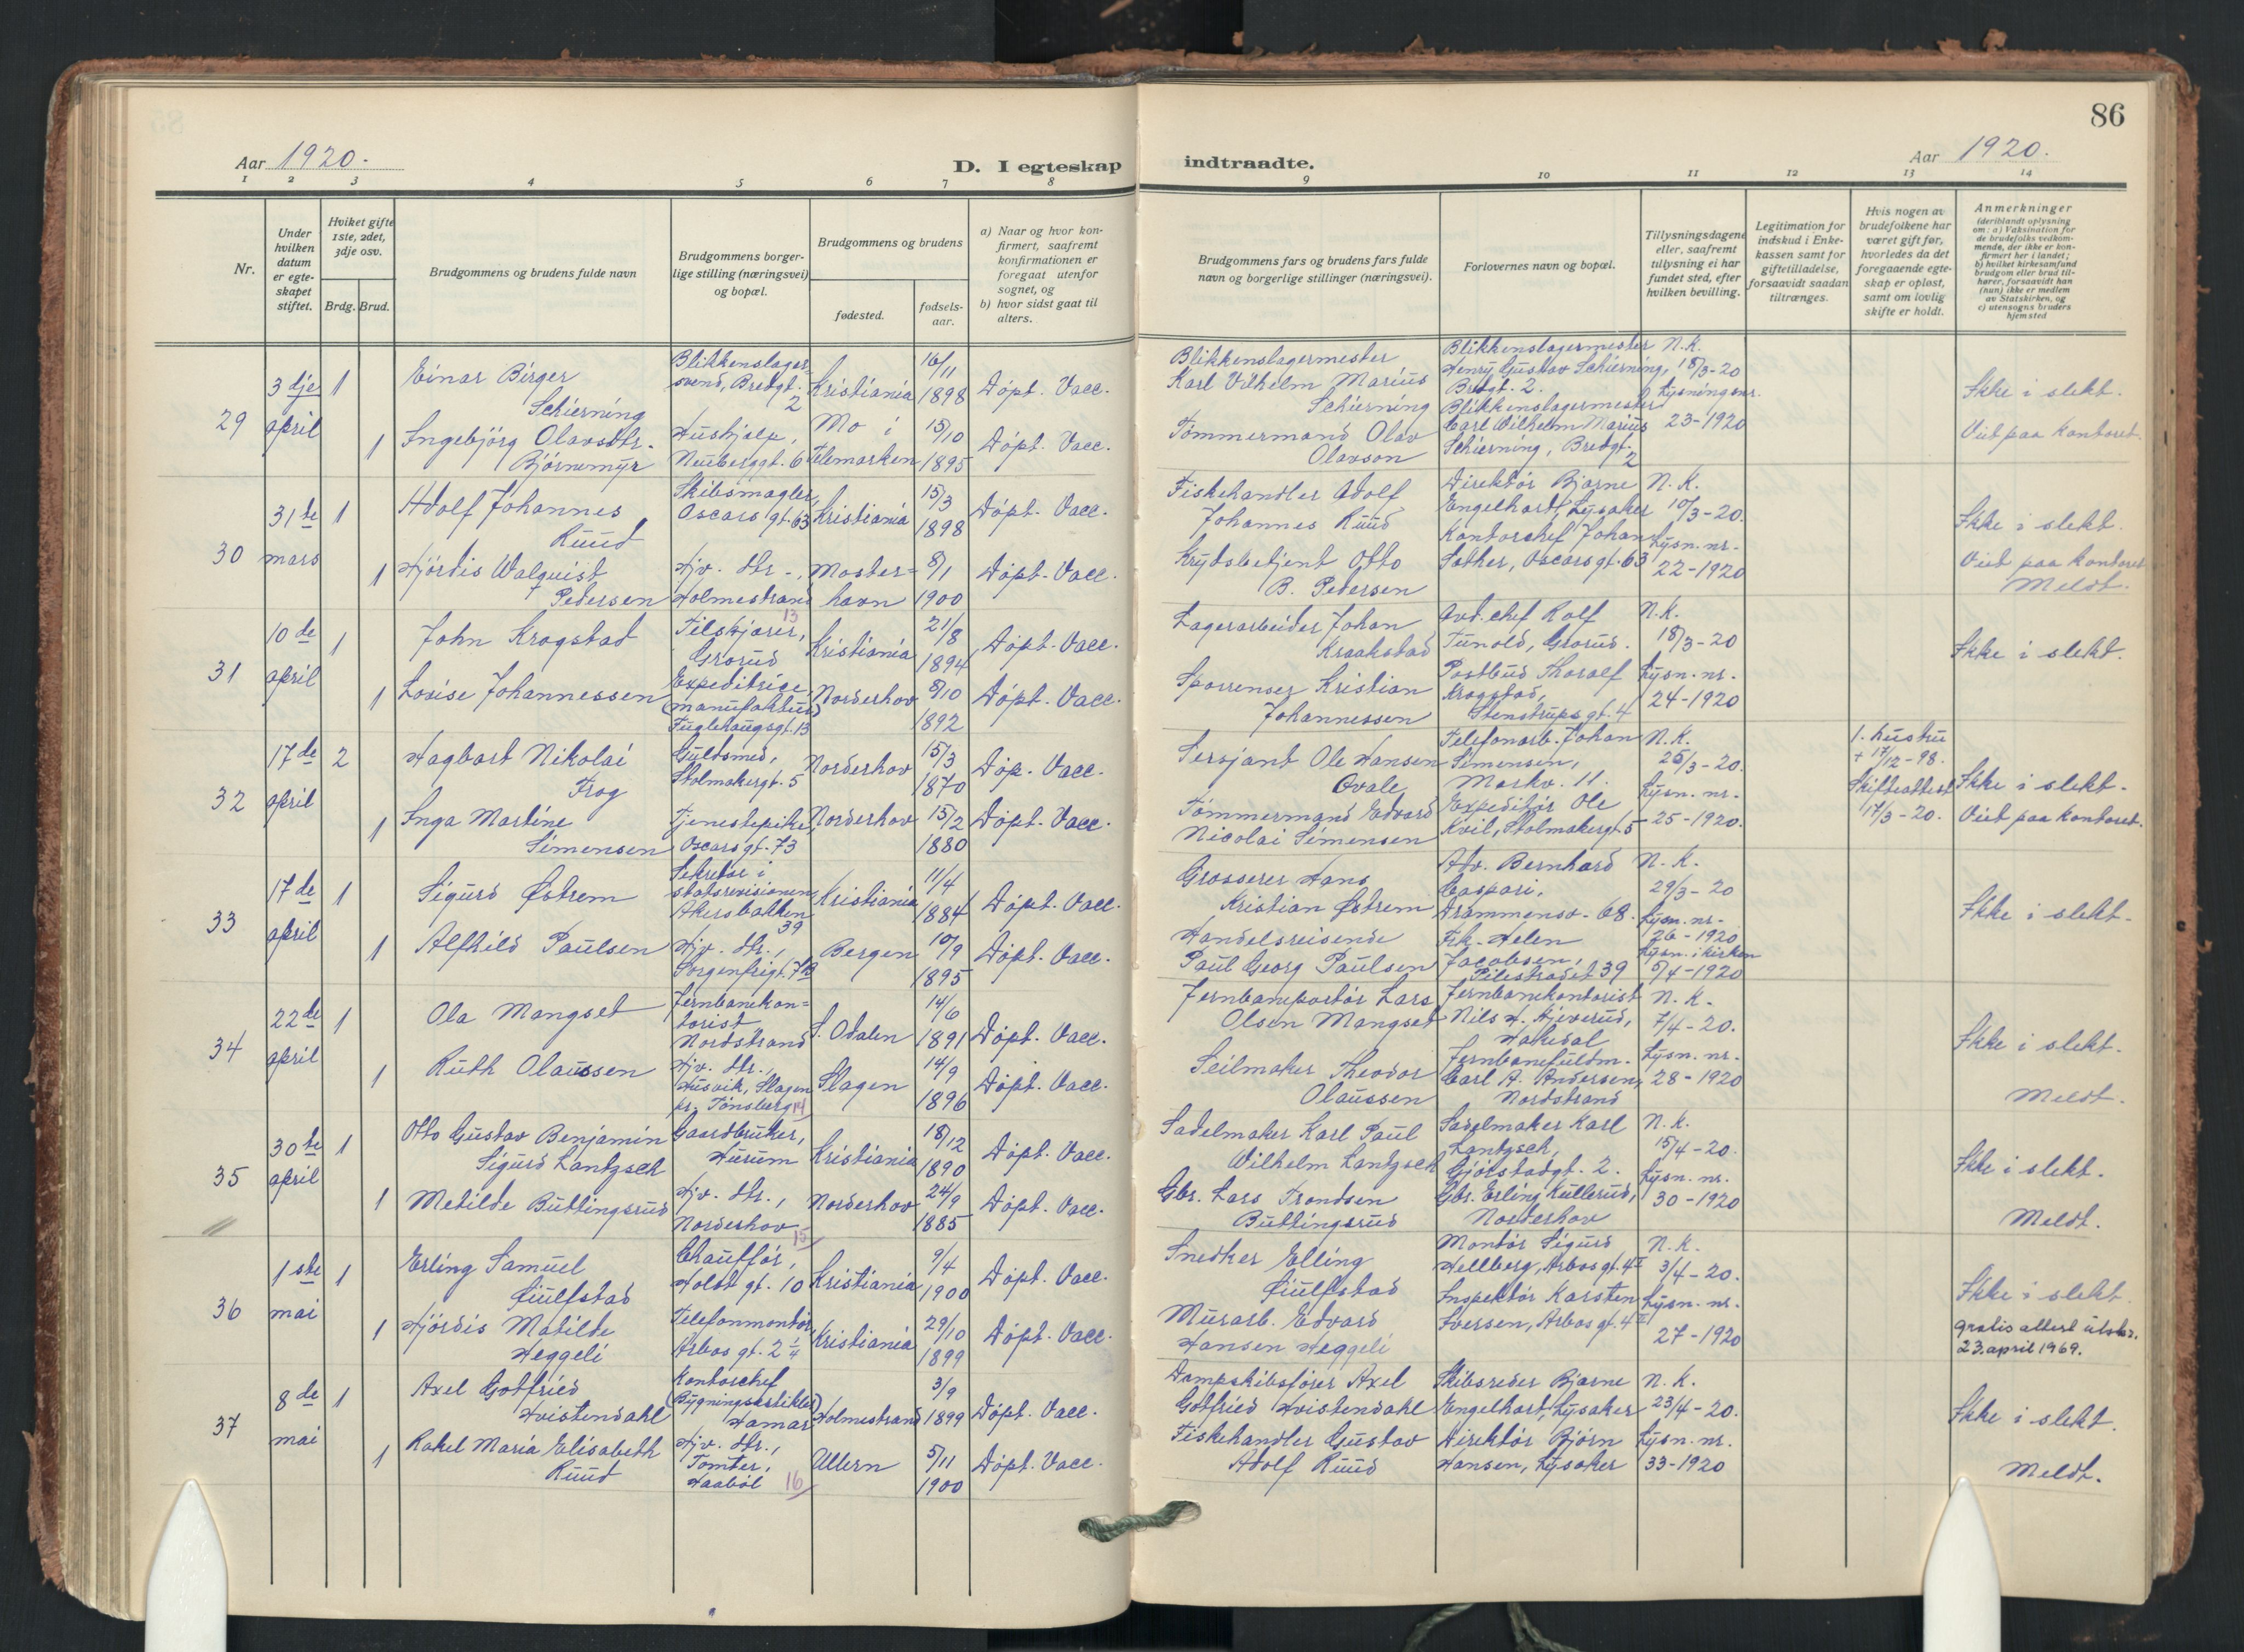 86
Aar 1920.
D. I egteskap indtraadte.
Aar 1920.
1 2 3 4 5 6 7 8 9 10 11 12 13 14
Nr.
Under hvilken datum er egteskapet stiftet.
Hviket gifte 1ste, 2det, 3dje osv.
Brdg. Brud.
Brudgommens og brudens fulde navn
Brudgommens borgerlige stilling (næringsvei) og bopæl.
Brudgommens og brudens
fødested.
fødselsaar.
a) Naar og hvor konfirmert, saafremt konfirmationen er foregaat utenfor sognet, og
b) hvor sidst gaat til alters.
Brudgommens fars og brudens fars fulde navn og borgerlige stillinger (næringsvei).
Forlovernes navn og bopæl.
Tillysningsdagene eller, saafremt tillysning ei har fundet sted, efter hvilken bevilling.
Legitimation for indskud i Enkekassen samt for giftetilladelse, forsaavidt saadan tiltrænges.
Hvis nogen av brudefolkene har været gift før, hvorledes da det foregaaende egteskap er opløst, samt om lovlig skifte er holdt.
Anmerkninger
(deriblandt oplysning om: a) Vaksination for de brudefolks vedkommende, der ikke er konfirmert her i landet;
b) hvilket kirkesamfund brudgom eller brud tilhører, forsaavidt han (hun) ikke er medlem av Statskirken, og
c) utensogns bruders hjemsted
29
3dje april
1
Einar Birger Schierning
Blikkenslagersvend, Bredgt. 2
Kristiania
16/11 1898
Døpt. Vacc.
Blikkenslagermester Karl Vilhelm Marius Schierning
Blikkenslagermester Henry Gustav Schierning, Bredgt. 2.
N.K. 18/3-20
Lysningsnr. 23-1920
Ikke i slekt.
1
Ingebjörg Olavsdtr. Bjørnemyr
Hushjelp, Neuberggt. 6
Mo i Telemarken
15/10 1895
Døpt. Vacc.
Tømmermand Olav Olavson
Blikkenslagermester Carl Wilhelm Marius Schierning, Bredgt. 2
Viet paa kontoret.
30
31te mars
1
Adolf Johannes Ruud
Skibsmægler, Oscars gt. 63
Kristiania
15/3 1898
Døpt. Vacc.
Fiskehandler Adolf Johannes Ruud
Direktør Bjarne Engelhart, Lysaker
N.K. 10/3-20.
Lysn. nr. 22-1920
Ikke i slekt.
1
Hjördis Walquist Pedersen
Hjv. dtr., Holmestrand
13
Mosterhavn
8/1 1900
Døpt. Vacc.
Krydsbetjent Otto B. Pedersen
Kontorchef Johan Sæther, Oscarsgt. 63
Viet paa kontoret
Meldt.
31
10de april
1
John Krogstad
Filskjærer, Grorud
Kristiania
21/8 1894
Døpt. Vacc.
Lagerarbeider Johan Kraakstad
Avd. chef Rolf Tunold, Grorud.
N.K. 18/3-20
Lysn. nr. 24-1920
Ikke i slekt.
1
Lovise Johannessen
Expeditrice, (manufaktur) Fuglehaugsgt. 13
Norderhov
8/10 1892
Døpt. Vacc.
Sporrenser Kristian Johannessen
Postbud Thoralf Krogstad, Stenstrups gt. 4
32
17de april
2
Hagbart Nikolai Frog
Guldsmed, Stolmakergt. 5
Norderhov
15/3 1870
Døp. Vacc.
Sersjant Ole Hansen Ovale
Telefonarb. Johan Simensen, Markv. 11.
N.K. 25/3-20.
Lysn. nr. 25-1920.
1. hustru + 17/12-98. Skifteattest 17/3-20.
Ikke i slekt.
1
Inga Martine Simensen
Tjenestepike, Oscarsgt. 73
Norderhov
15/2 1880
Døpt. Vacc.
Tømmermand Edvard Nicolai Simensen
Expeditør Ole Kvil, Stolmakergt. 5
Viet paa kontoret.
33
17de april
1
Sigurd Østrem
Sekretær i statsrevisionen, Akersbakken 39
Kristiania
11/4 1884
Døpt. Vacc.
Grosserer Hans Kristian Østrem
Adv. Bernhard Caspari, Drammensv. 68.
N.K. 29/3-20
Lysn. nr. 26-1920
Lysn. i kirken 5/4-1920
Ikke i slekt.
1
Alfhild Paulsen
Hjv. dtr., Sorgenfrigt. 7B
Bergen
10/9 1895
Døpt. Vacc.
Handelsreisende Paul Georg Paulsen
Frk. Helen Jacobsen, Pilestrædet 39
34
22de april
1
Ola Mangset
Jernbanekontorist Nordstrand
S. Odalen
14/6 1891
Døpt. Vacc.
Jernbaneportør Lars Olsen Mangset
Jernbanekontorist Nils H. Hjeverud, Hakedal
N.K. 7/4-20.
Lysn. nr. 28-1920
Ikke i slekt.
1
Ruth Olaussen
Hjv. dtr., Husvik, Slagen pr. Tønsberg
14
Slagen
14/9 1896
Døpt. Vacc.
Seilmaker Theodor Olaussen
Jernbanefuldm. Carl A. Andersen, Nordstrand
Meldt.
35
30te april
1
Otto Gustav Benjamin Sigurd Lantzsch
Gaardbruker, Hurum
Kristiania
18/12 1890
Døpt. Vacc.
Sadelmaker Karl Paul Wilhelm Lantzsch
Sadelmaker Karl Lantzsch, Gjøtstadgt. 2.
N.K. 15/4-20.
Lysn. nr. 30-1920
Ikke i slekt.
1
Metilde Buttingsrud
Hjv. dtr., Norderhov
15
Norderhov
24/9 1885
Døpt. Vacc.
Gbr. Lars Trondsen Buttingsrud
Gbr. Erling Kullerud, Norderhov
Meldt.
36
1ste mai
1
Erling Samuel Giulfstad
Chauffør, Holst gt. 10
Kristiania
9/4 1900
Døpt. Vacc.
Snedker Elling Giulfstad
Montør Sigurd Hellberg, Arbosgt. 4 II
N.K. 3/4-20.
Lysn. nr. 27-1920
Ikke i slekt.
1
Hjördis Matilde Heggeli
Telefonmontør, Arbos gt. 2 1/4
Kristiania
29/10 1899
Døpt. Vacc.
Murarb. Edvard Hansen Heggeli
Inspektør Karsten Iversen, Arbos gt. 4 II
gratis attest utsk. 23. april 1969.
37
8de mai
1
Axel Gotfried Hvistendahl
Kontorchef (Bygningsartikler) Hamar
Holmestrand
3/9 1899
Døpt. Vacc.
Dampskibsfører Axel Gotfried Hvistendahl
Skibsreder Bjarne Engelhart, Lysaker
N.K. 23/4-20.
Lysn. nr. 33-1920
Ikke i slekt.
1
Rakel Maria Elisabeth Ruud
Hjv. dtr., Tomter, Haabøl
16
Ullern
5/11 1900
Døpt. Vacc.
Fiskehandler Gustav Adolf Ruud
Direktør Bjørn Hansen, Lysaker
Meldt.